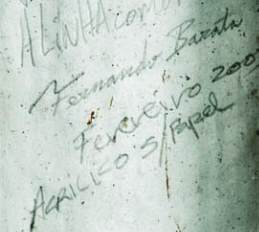 ALINHA como
Fernando Barata
Fevereiro 200
Acrilico S/Papel